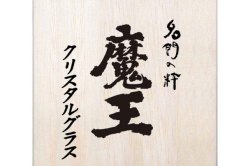 名門の粋
魔王
クリスタルグラス